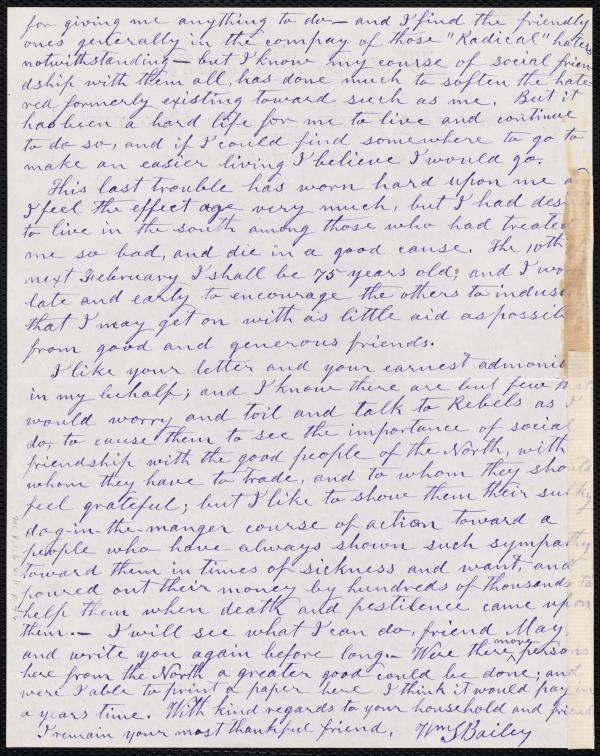 for giving me anything to do— and I find the friendly
ones generally in the compay of those "Radical" haters
notwithstanding— but I know my course of social frien
dship with them all, has done much to soften the hate
red formerly existing toward such as me. But it
has been a hard life for me to live and continue
to do so, and if I could find somewhere to go to
make an easier living I believe I would go.
This last trouble has worn hard upon me a
I feel the effect age very much, but I had des
to live in the south among those who had treated
me so bad, and die in a good cause. The 10th
next February I shall be 75 years old; and I wo
late and early to encourage the others to indus
that I may get on with as little aid as possib
from good and generous friends.
I like your letter and your earnest admoniti
in my behalf; and I know there are but few
would worry and toil and talk to Rebels as I
do, to cause them to see the importance of social
friendship with the good people of the North, with
whom they have to trade, and to whom they should
feel grateful; but I like to show them their sulky
dog-in-the-manger course of action toward a
people who have always shown such sympathy
toward them in times of sickness and want, and
poured out their money by hundreds of thousands to
help them when death and pestilence came upon
them.— I will see what I can do, friend May,
and write you again before long.— Were there more persons
here from the North a greater good could be done; and
were I able to print a paper here I think it would pay in
a years time. With kind regards to your household and friend
I remain your most thankful friend, Wm S Bailey